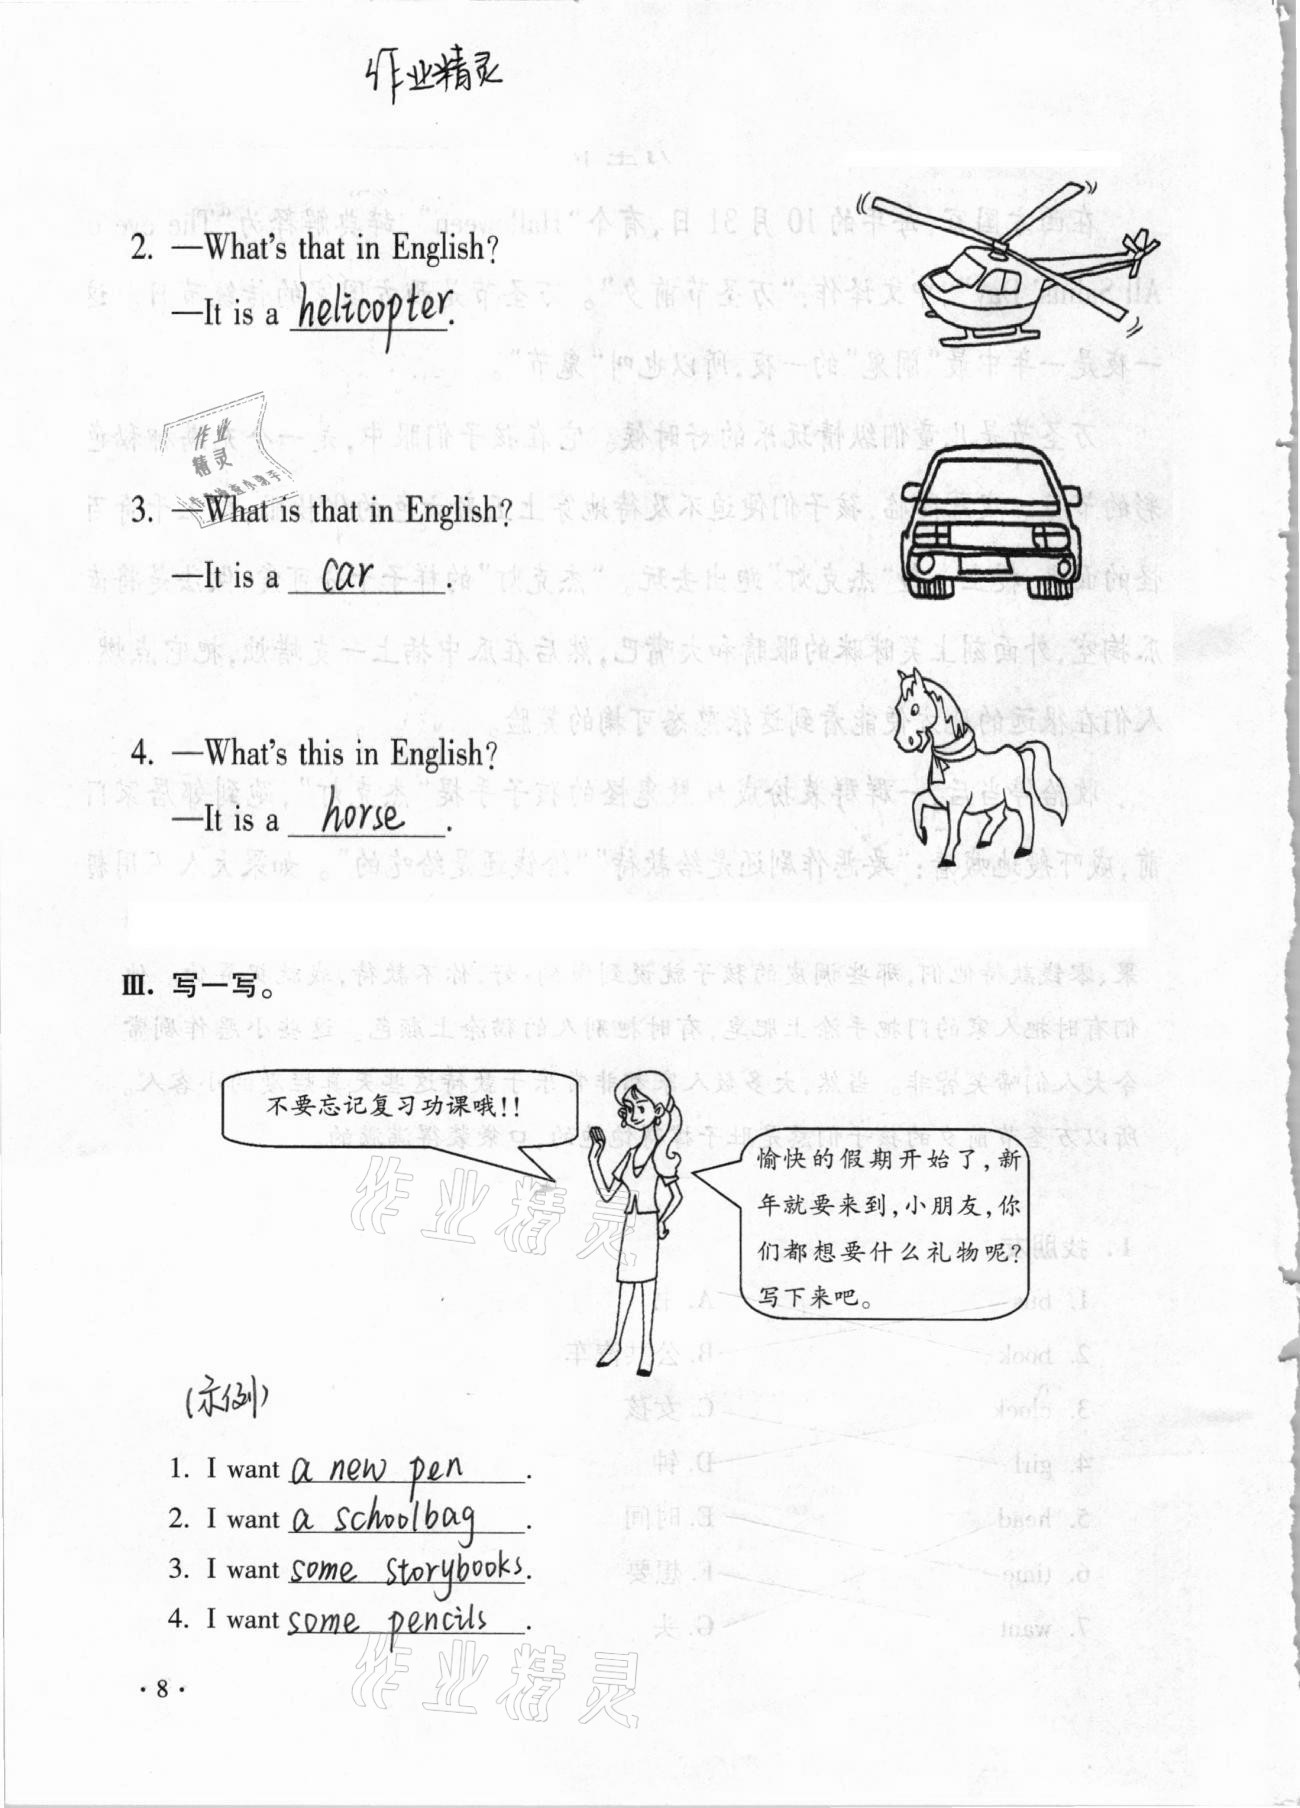 作业精灵
2. —What's that in English?
—It is a helicopter.
作业
精灵
3. —What is that in English?
—It is a car.
4. —What's this in English?
—It is a horse.
Ⅲ. 写一写。
不要忘记复习功课哦!!
愉快的假期开始了,新
年就要来到,小朋友,你
们都想要什么礼物呢?
写下来吧。
作业精灵
(示例)
1. I want a new pen.
2. I want a schoolbag.
3. I want some storybooks.
4. I want some pencils.
作业精灵
·8·